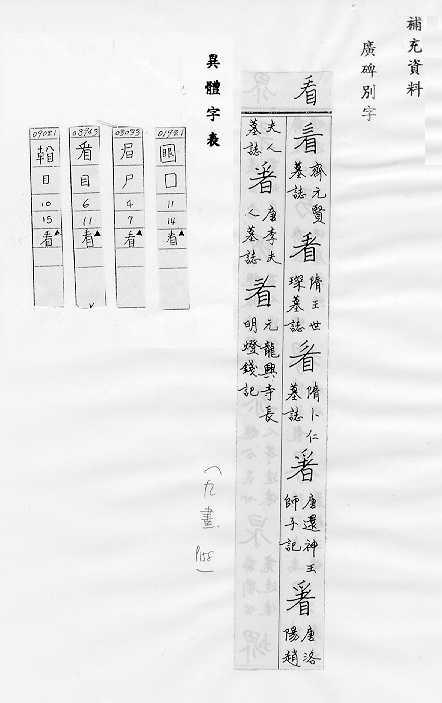 補充資料
廣碑別字
看
看 齊元賢墓誌 看 隋王世琛墓誌 看 隋卜仁墓誌 看 唐還神王師子記 看 唐洛陽趙
夫人墓誌 看 唐李夫人墓誌 看 元龍興寺長明燈錢記
異體字表
01921
囗
11
14
看▲
03033
眉
尸
4
7
看▲
03943
看
目
6
11
看▲
09021
目
10
15
看▲
(九畫 P158)